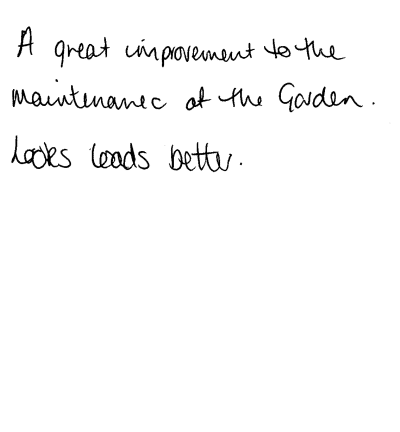 A great improvement to the
maintenance of the Garden.
Looks loads better.